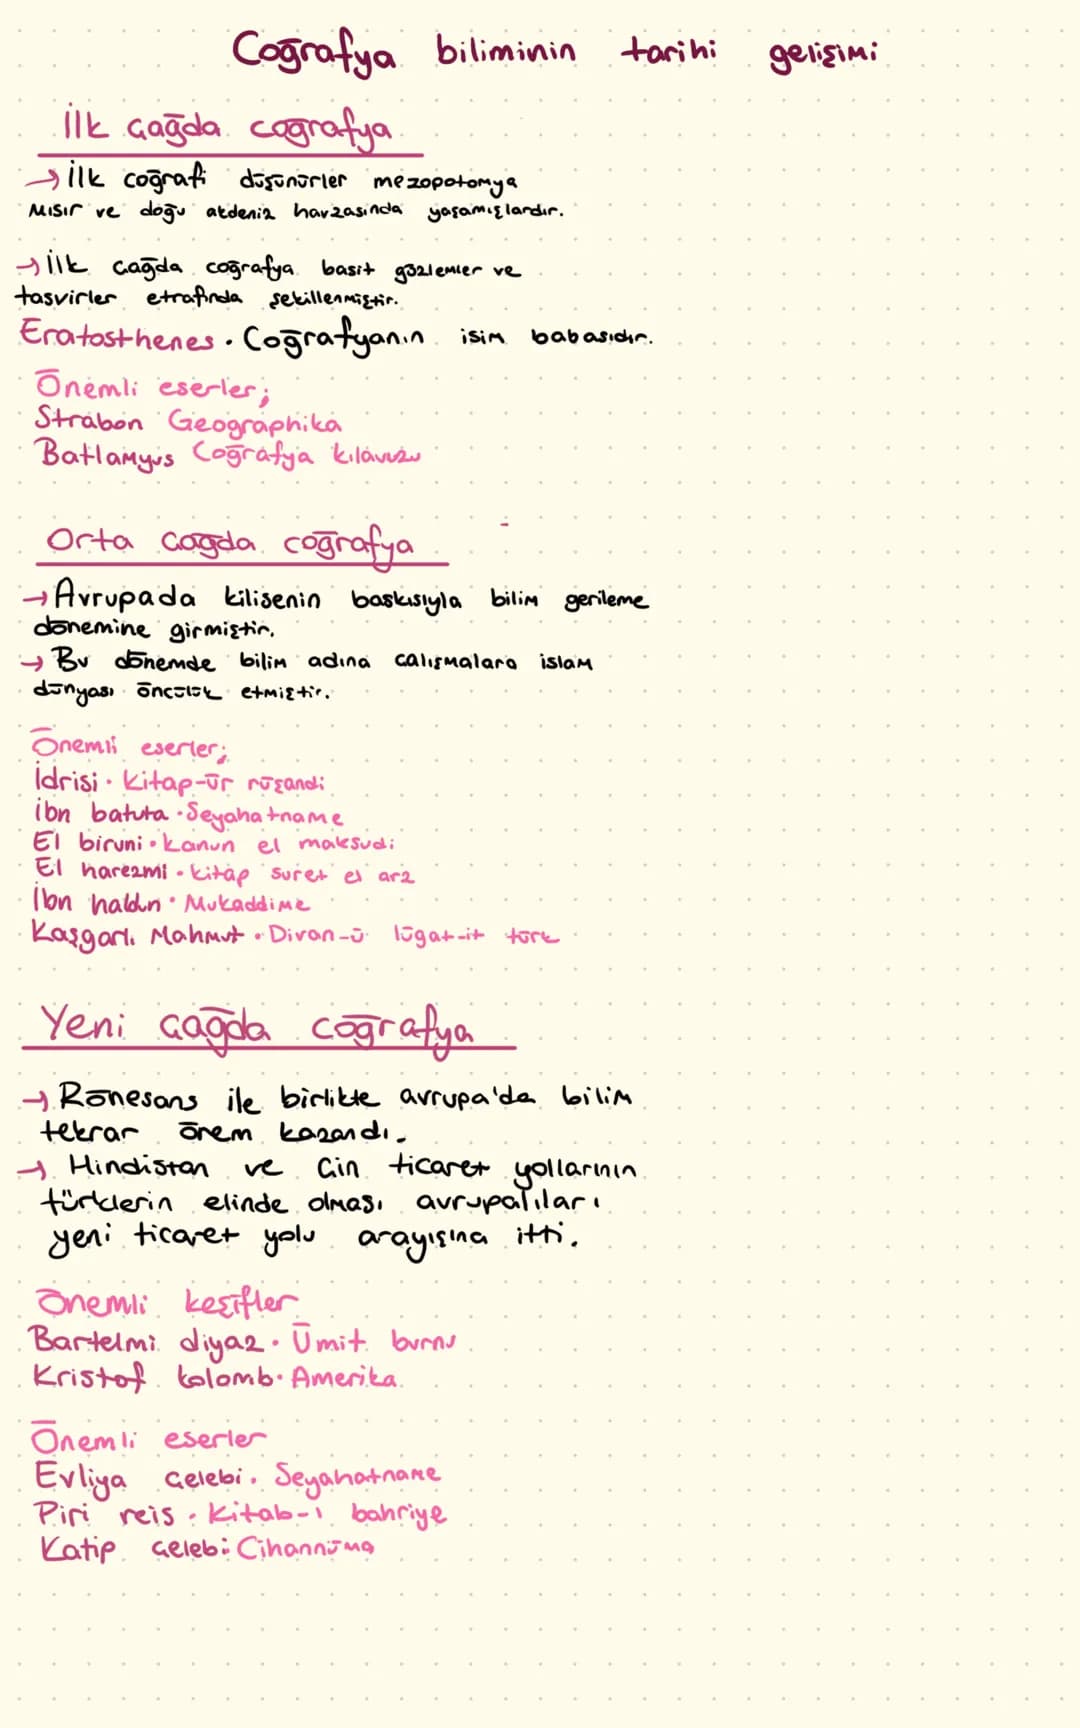 Coğrafya biliminin tarihi gelişimi
İlk çağda coğrafya
→ İlk coğrafi düşünürler mezopotomya
Mısır ve doğu akdeniz havzasında yaşamışlardır.
→ İlk çağda coğrafya basit gözlemler ve
tasvirler etrafında şekillenmiştir.
Eratosthenes • Coğrafyanın isim babasıdır.
Önemli eserler;
Strabon Geographika
Batlamyus Coğrafya kılavuzu
Orta çağda coğrafya
→ Avrupada kilisenin baskısıyla bilim gerileme
dönemine girmiştir.
→ Bu dönemde bilim adına çalışmalara islam
dünyası öncülük etmiştir.
Önemli eserler;
İdrisi • kitap-ür rüşandi
İbn batuta • Seyahatname
El biruni • kanun el maksudi
El harezmi • kitap suret el arz
İbn haldun • Mukaddime
Kaşgarlı Mahmut • Divan-ü lügat-it türk
Yeni çağda coğrafya
→ Rönesans ile birlikte avrupa'da bilim
tekrar önem kazandı.
→ Hindistan ve Çin ticaret yollarının
türklerin elinde olması avrupalıları
yeni ticaret yolu arayışına itti.
Önemli keşifler
Bartelmi diyaz • Ümit burnu
Kristof kolomb • Amerika
Önemli eserler
Evliya çelebi • Seyahatname
Piri reis • Kitab-ı bahriye
Katip çelebi: Cihannüma